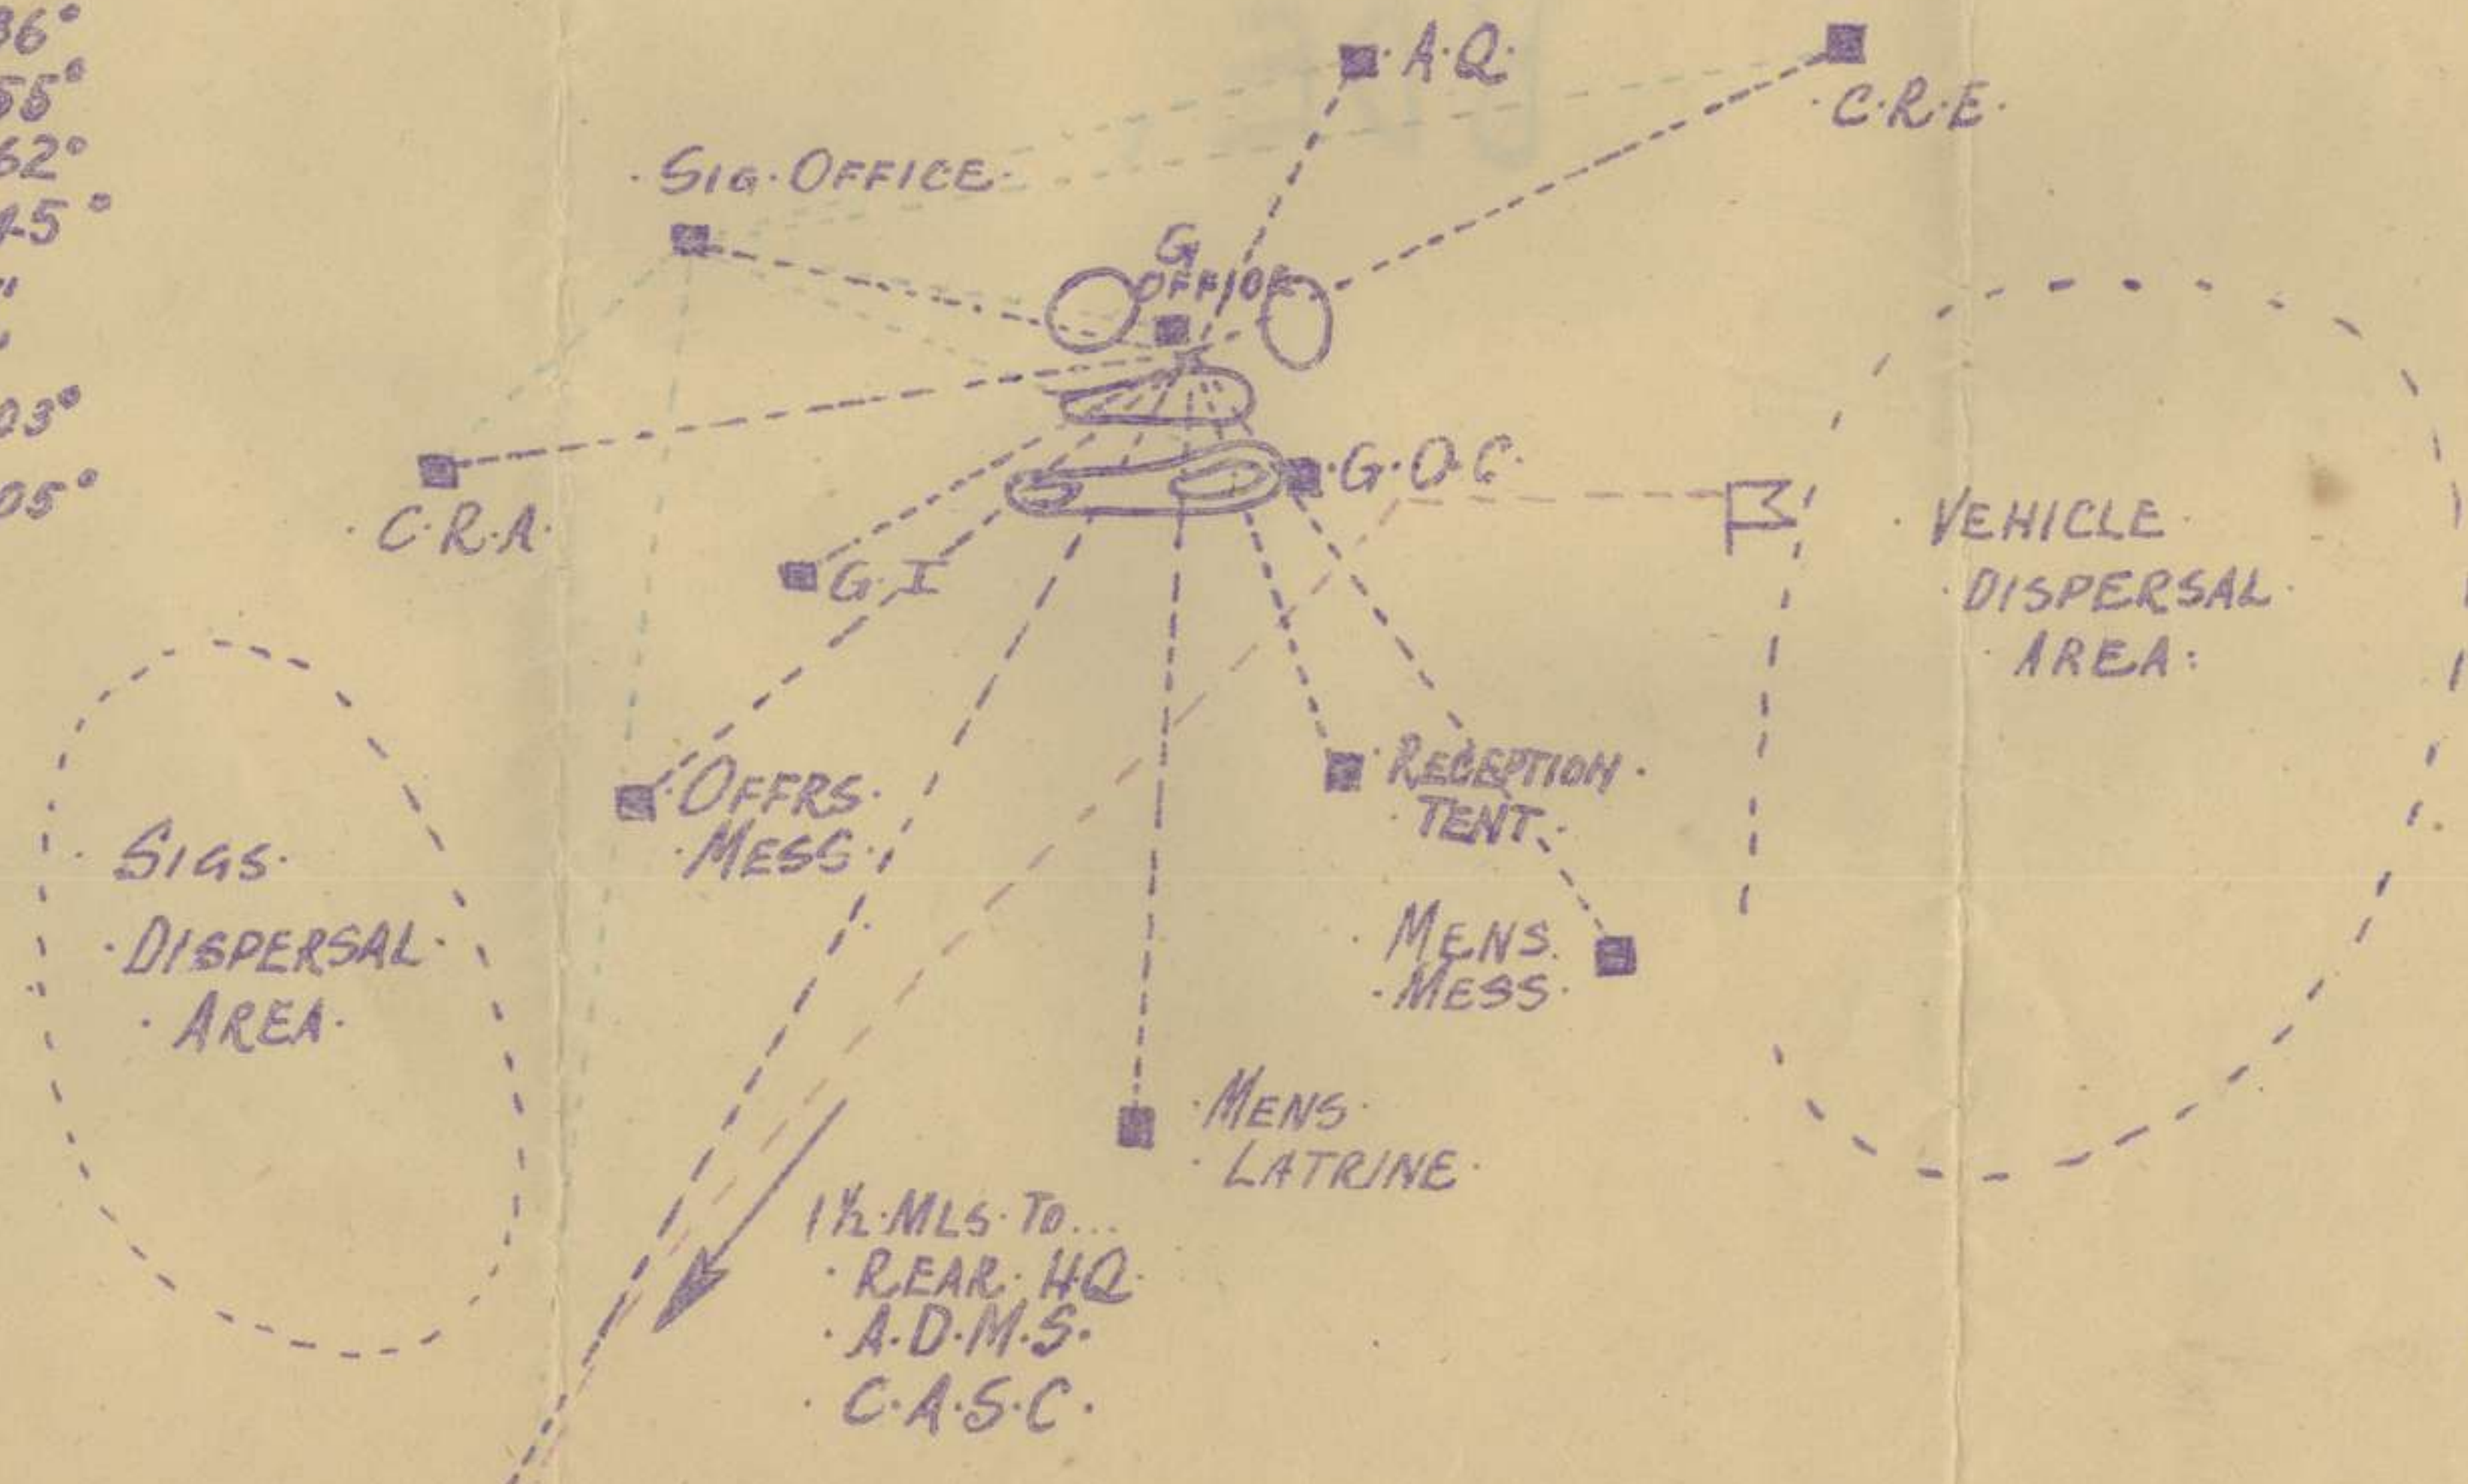 36°
55°
62°
45°
"
"
03°
05°
·A.Q.
·C.R.E.
·SIG. OFFICE·
G
OFFICE
·G.O.C.
·C.R.A.
G.I
·VEHICLE·
·DISPERSAL·
·AREA:
·OFFRS.
·MESS.
·RECEPTION·
·TENT.
·SIGS·
·DISPERSAL·
·AREA·
·MENS.
·MESS.
·MENS·
·LATRINE·
1½·MLS·TO...
·REAR·HQ·
·A.D.M.S.
·C.A.S.C.